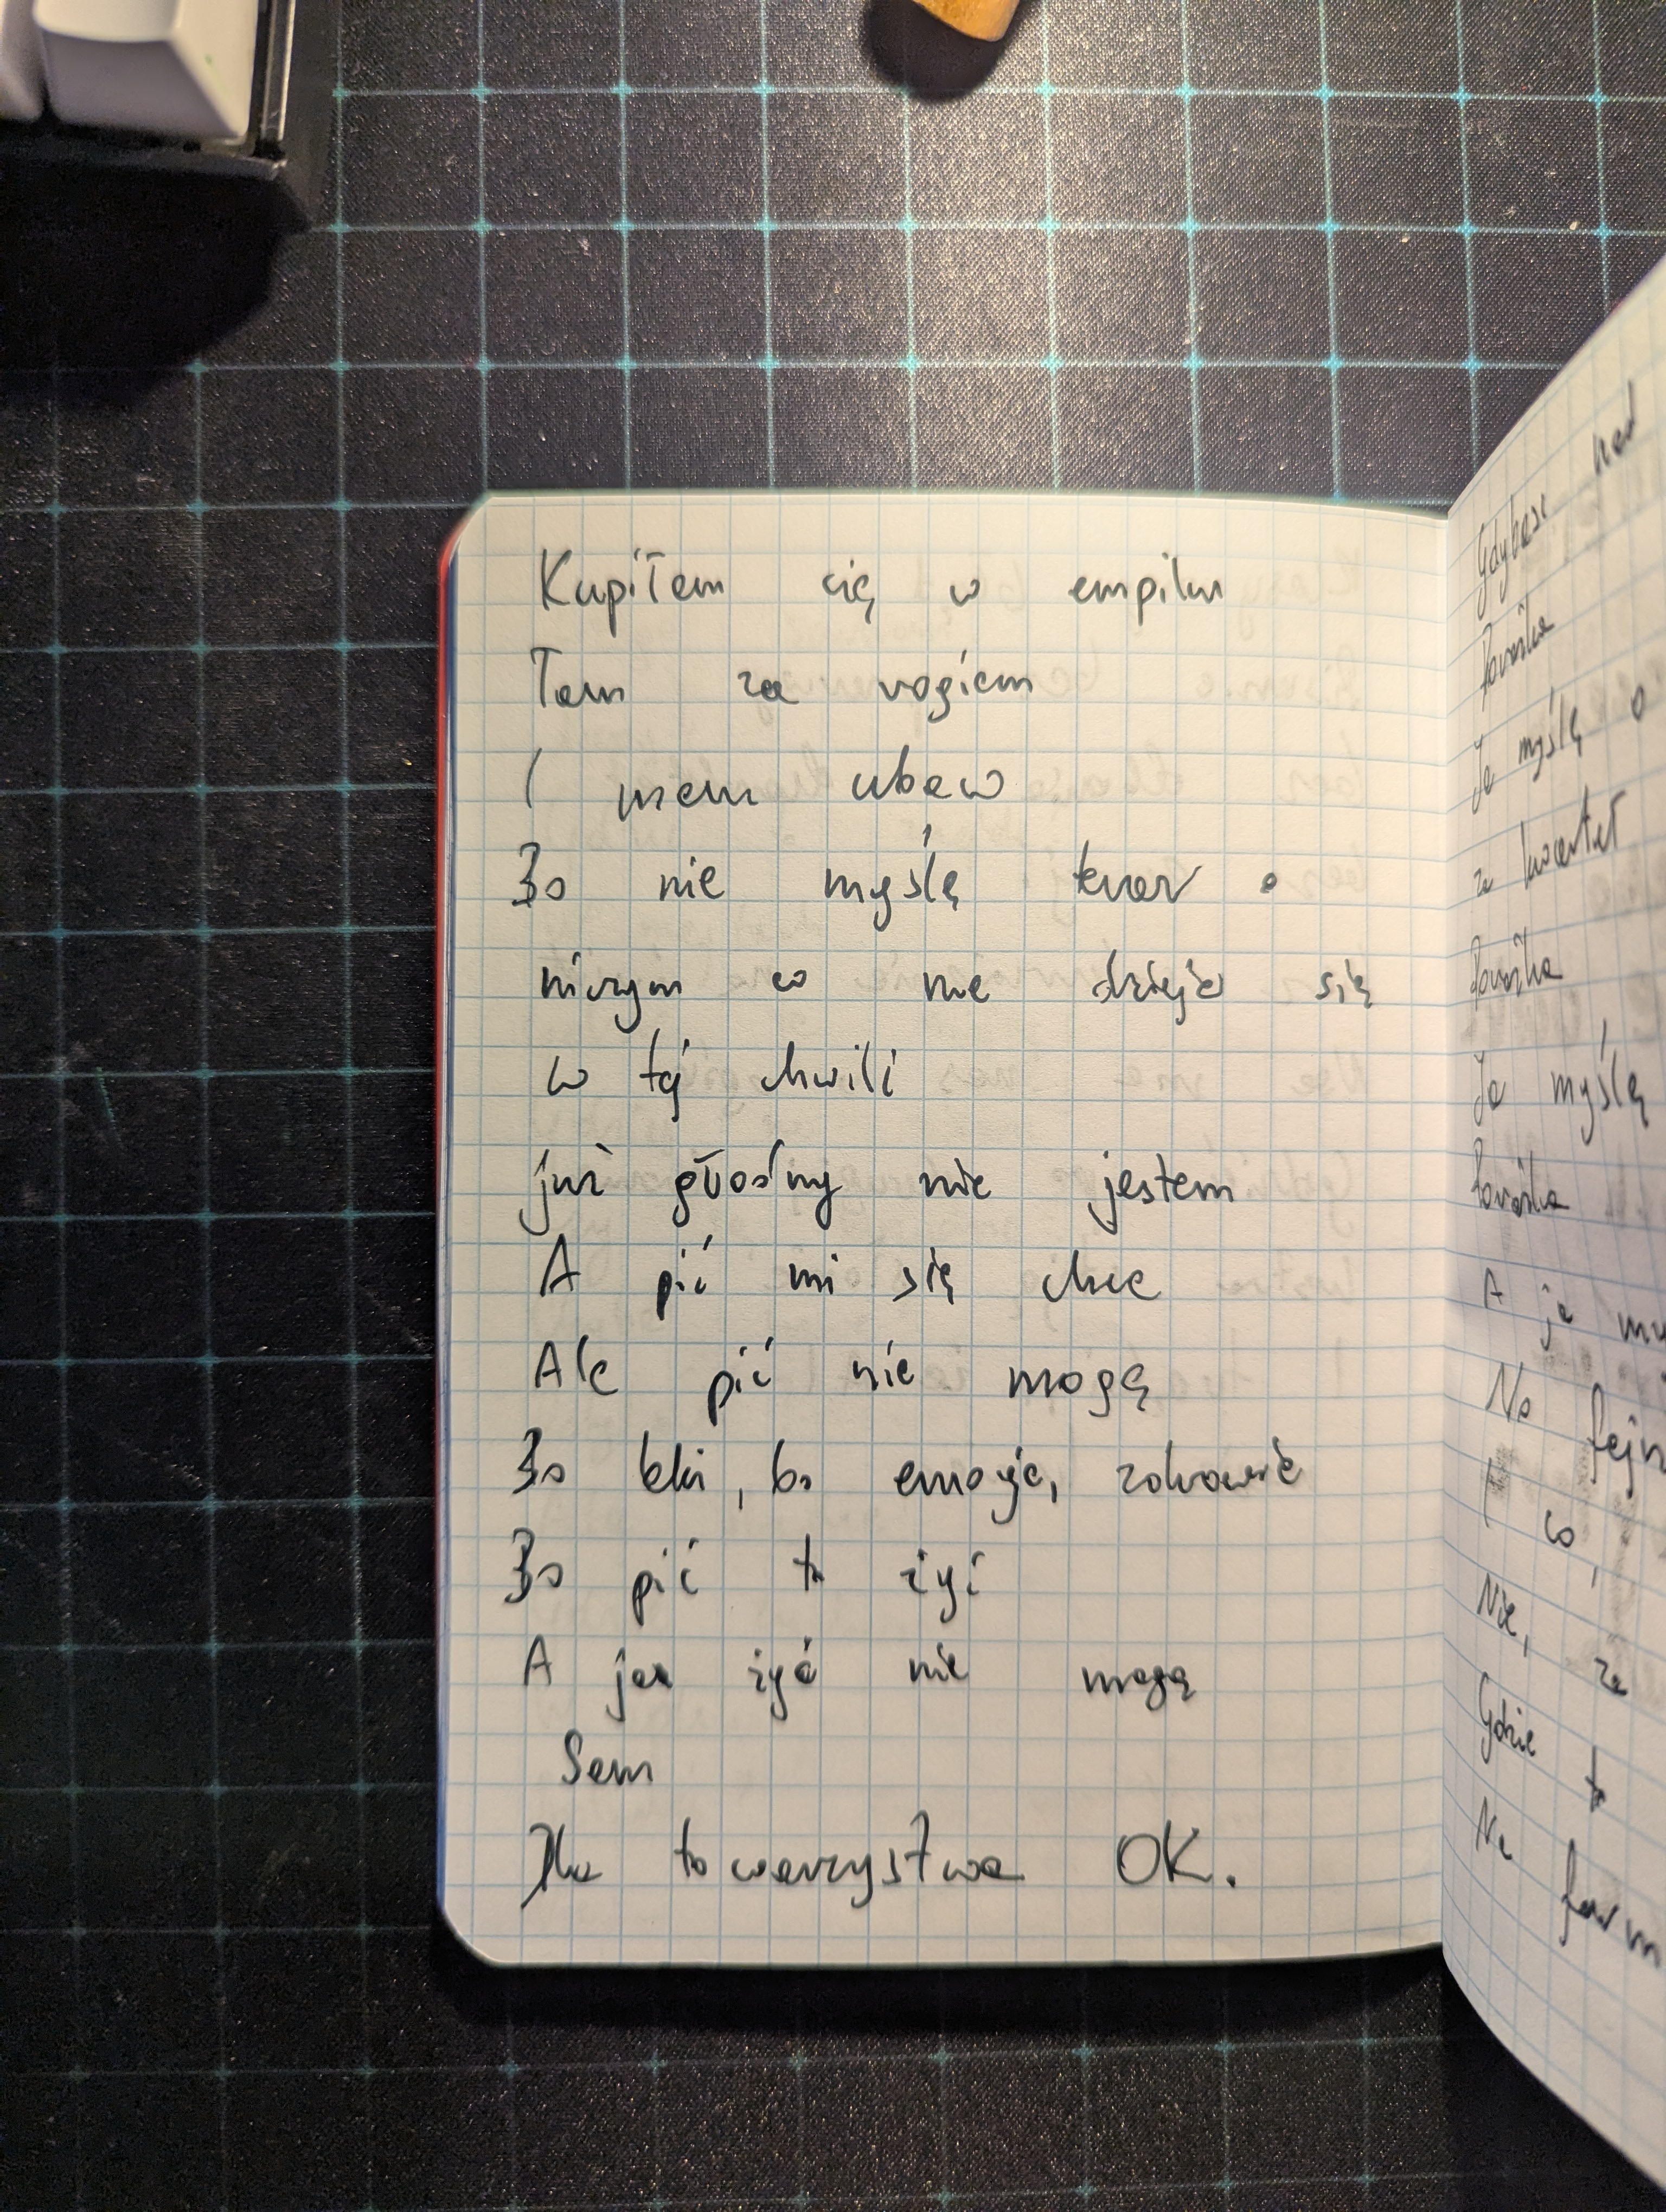 Kupiłem się w empiku
Tam za rogiem
I mam ubaw
Bo nie myślę teraz o
niczym co nie dzieje się
w tej chwili
już głodny nie jestem
A pić mi się chce
Ale pić nie mogę
Bo leki, bo emocje, zdrowie
Bo pić to żyć
A ja żyć nie mogę
Sam
Dla towarzystwa OK.
Gdybasz nad
Ja myślę o
za kwartał
Ja myślę
A ja
No fajn
I co,
Nie, za
Gdzie to
Na